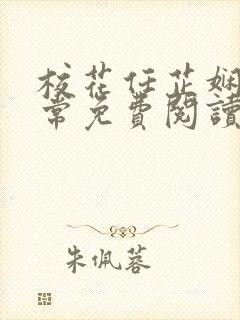 校花任芷娴
常免费閱讀
朱佩蓉